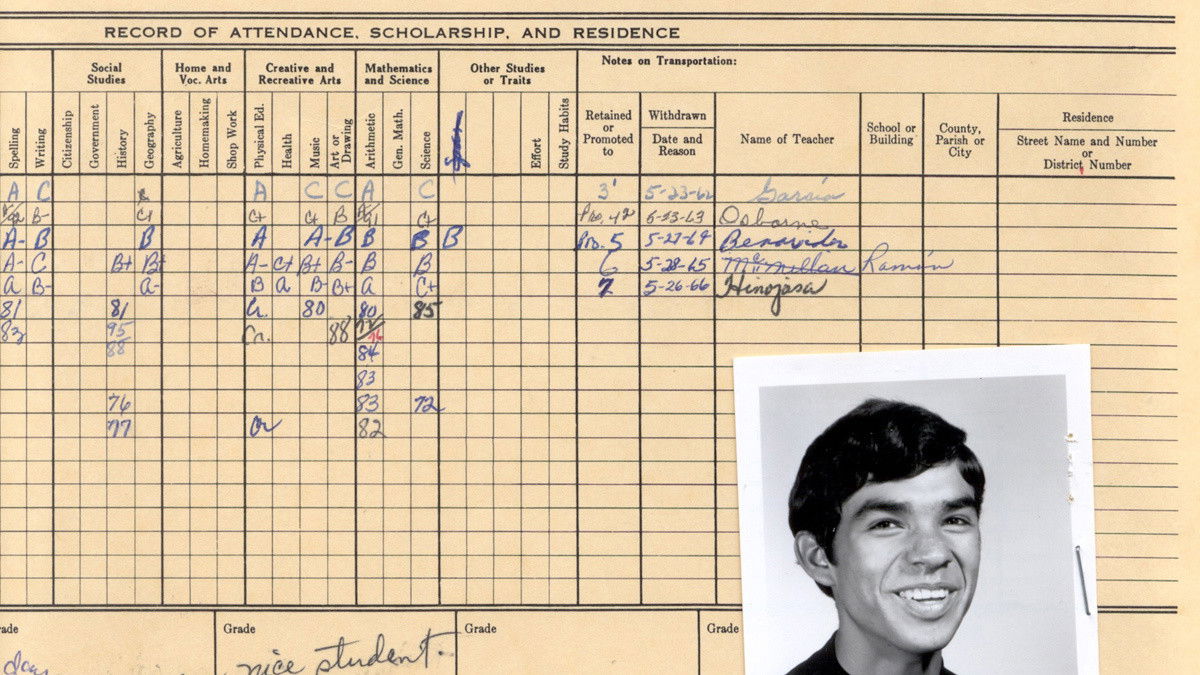 RECORD OF ATTENDANCE, SCHOLARSHIP, AND RESIDENCE
Social Studies Home and Voc. Arts Creative and Recreative Arts Mathematics and Science Other Studies or Traits Notes on Transportation:
Spelling Writing Citizenship Government History Geography Agriculture Homemaking Shop Work Physical Ed. Health Music Art or Drawing Arithmetic Gen. Math. Science Span Effort Study Habits Retained or Promoted to Withdrawn Date and Reason Name of Teacher School or Building County, Parish or City Residence Street Name and Number or District Number
A C A C C A C 3 5-23-62 García
B- C+ C+ C+ B C+ Pro. 4 6-53-63 Osborne
A- B B A A- B B B B Pro. 5 5-27-64 Benavides
A- C B+ B+ A- C+ B+ B- B B 6 5-28-65 McMillan Ramón
A B- A- B A B- B+ A C+ 7 5-26-66 Hinojosa
81 81 Cr. 80 80 85
83 95 Cr. 88 76
88 84
83
76 83 72
77 Cr 82
ade Grade Grade Grade
nice student.